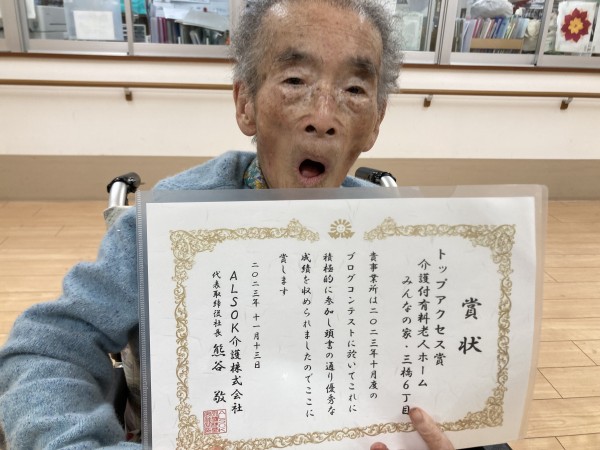 賞状
トップアクセス賞
介護付有料老人ホーム
みんなの家・三橋6丁目
貴事業所は二〇二三年十月度の
ブログコンテストに於いてこれに
積極的に参加し頭書の通り優秀な
成績を収められましたのでここに
賞します
二〇二三年 十一月十三日
ALSOK介護株式会社
代表取締役社長 熊谷 敬